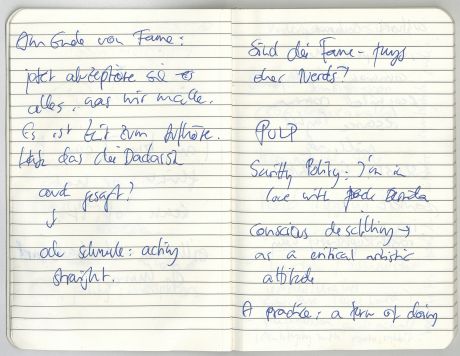 Am Ende von Fame:
jetzt akzeptiere sie es
alles, was wir mache.
Es ist Zeit zum Aufhöre.
das die Dadaisk
auch gesagt?
↓
ode schwule: acting
straight.
Sind die Fame-Jungs
eher Nerds?
PULP
Scritty Polity: I'm in
love with Derrida
Conscious deskilling →
as a critical artistic
attitude
A practice: a term of doing